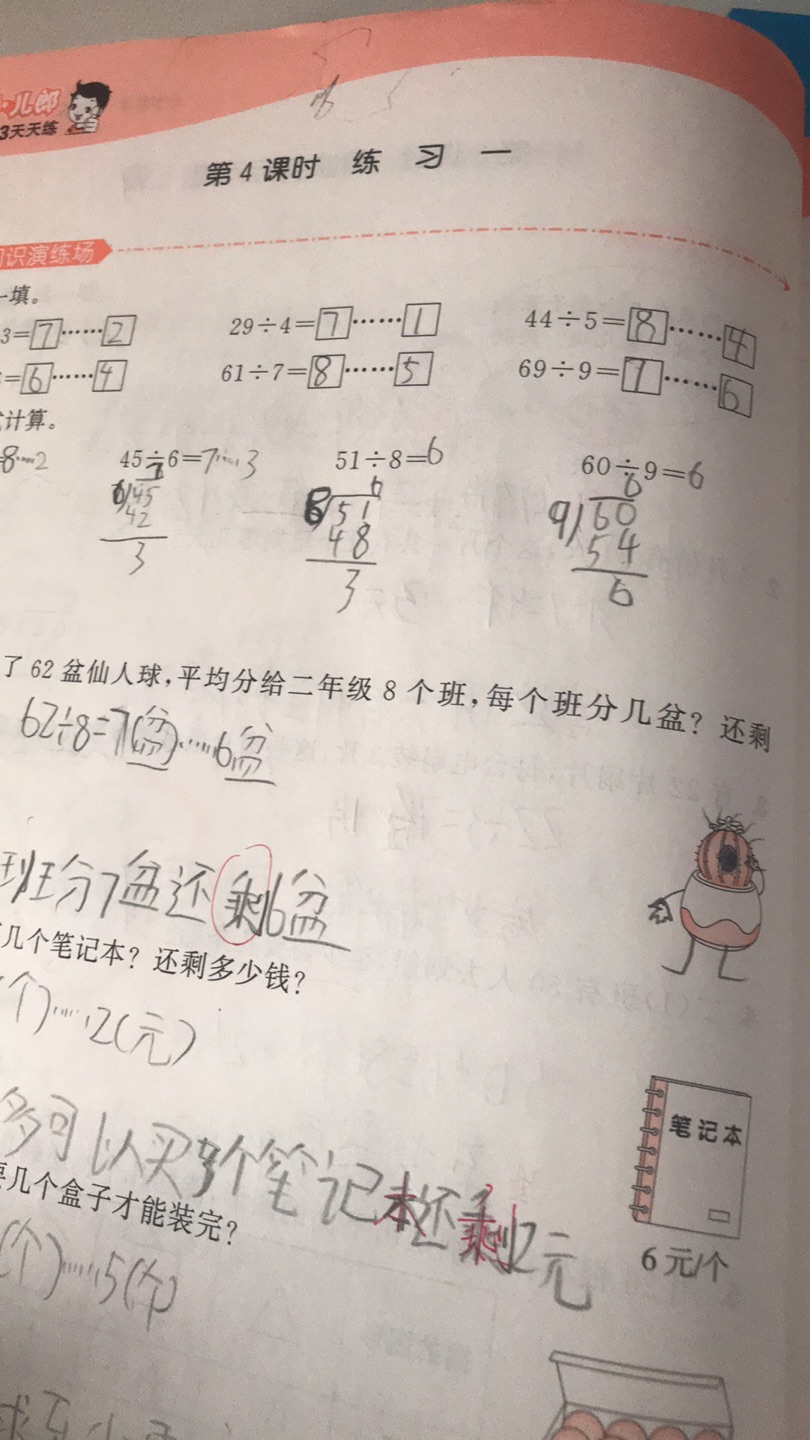 小儿郎
3天天练
第4课时 练习一
识演练场
一填。
3=7……2 29÷4=7……1 44÷5=8……4
=6……4 61÷7=8……5 69÷9=7……6
计算。
8…2 45÷6=7…3 51÷8=6 60÷9=6
7 6 6
6 45 8 51 9 60
42 48 54
3 3 6
了62盆仙人球,平均分给二年级8个班,每个班分几盆?还剩
62÷8=7(盆)……6盆
班分7盆还剩6盆
几个笔记本?还剩多少钱?
个)……2(元)
多可以买 个笔记本还剩2元
笔记本
几个盒子才能装完?
6元/个
(个)……5(个)